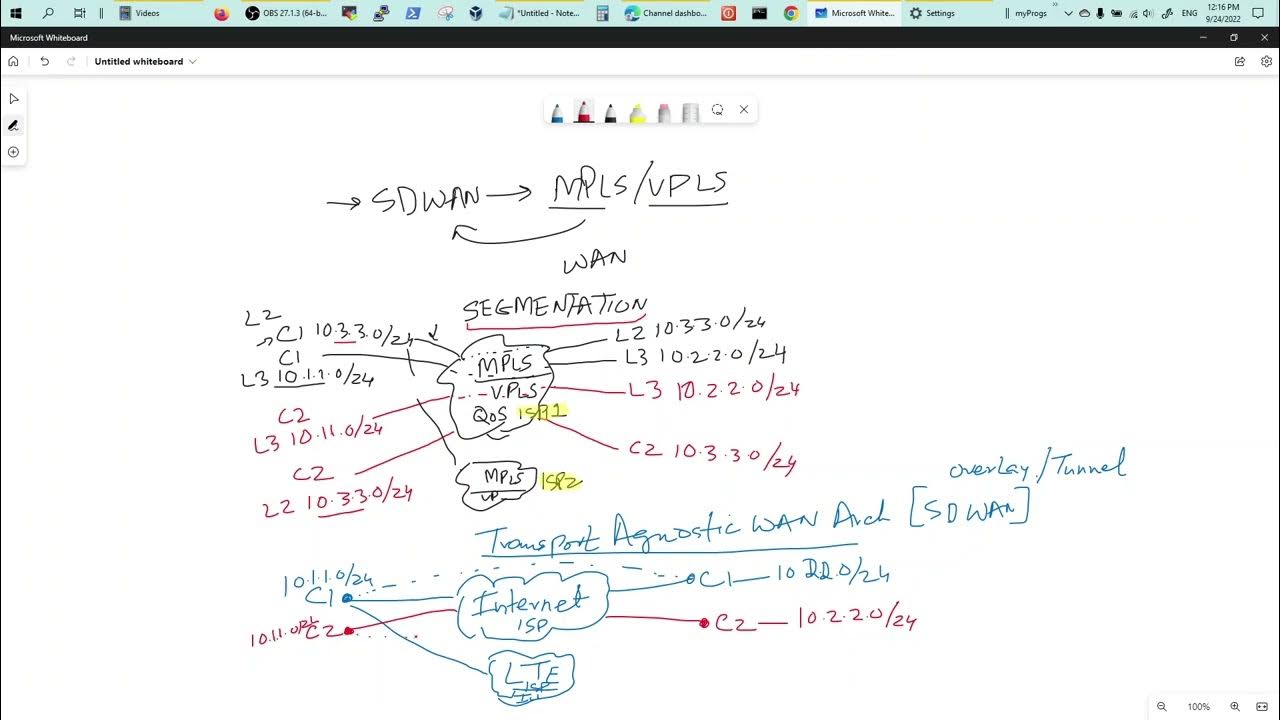 Videos
OBS 27.1.3 (64-b...
*Untitled - Note...
Channel dashbo...
Microsoft White...
Settings
myProgs
ENG
12:16 PM
9/24/2022
Microsoft Whiteboard
Untitled whiteboard
→ SDWAN → MPLS/VPLS
WAN
SEGMENTATION
L2
C1 10.3.3.0/24
L2 10.3.3.0/24
C1
MPLS
L3 10.2.2.0/24
L3 10.1.1.0/24
VPLS
L3 10.2.2.0/24
C2
QoS ISP1
L3 10.11.0/24
C2 10.3.3.0/24
C2
MPLS
ISP2
L2 10.3.3.0/24
VP
overlay/Tunnel
Transport Agnostic WAN Arch [SDWAN]
10.1.1.0/24
C1
Internet
C1 — 10.2.2.0/24
ISP
10.11.0/24 C2
C2 — 10.2.2.0/24
LTE
ISP
100%